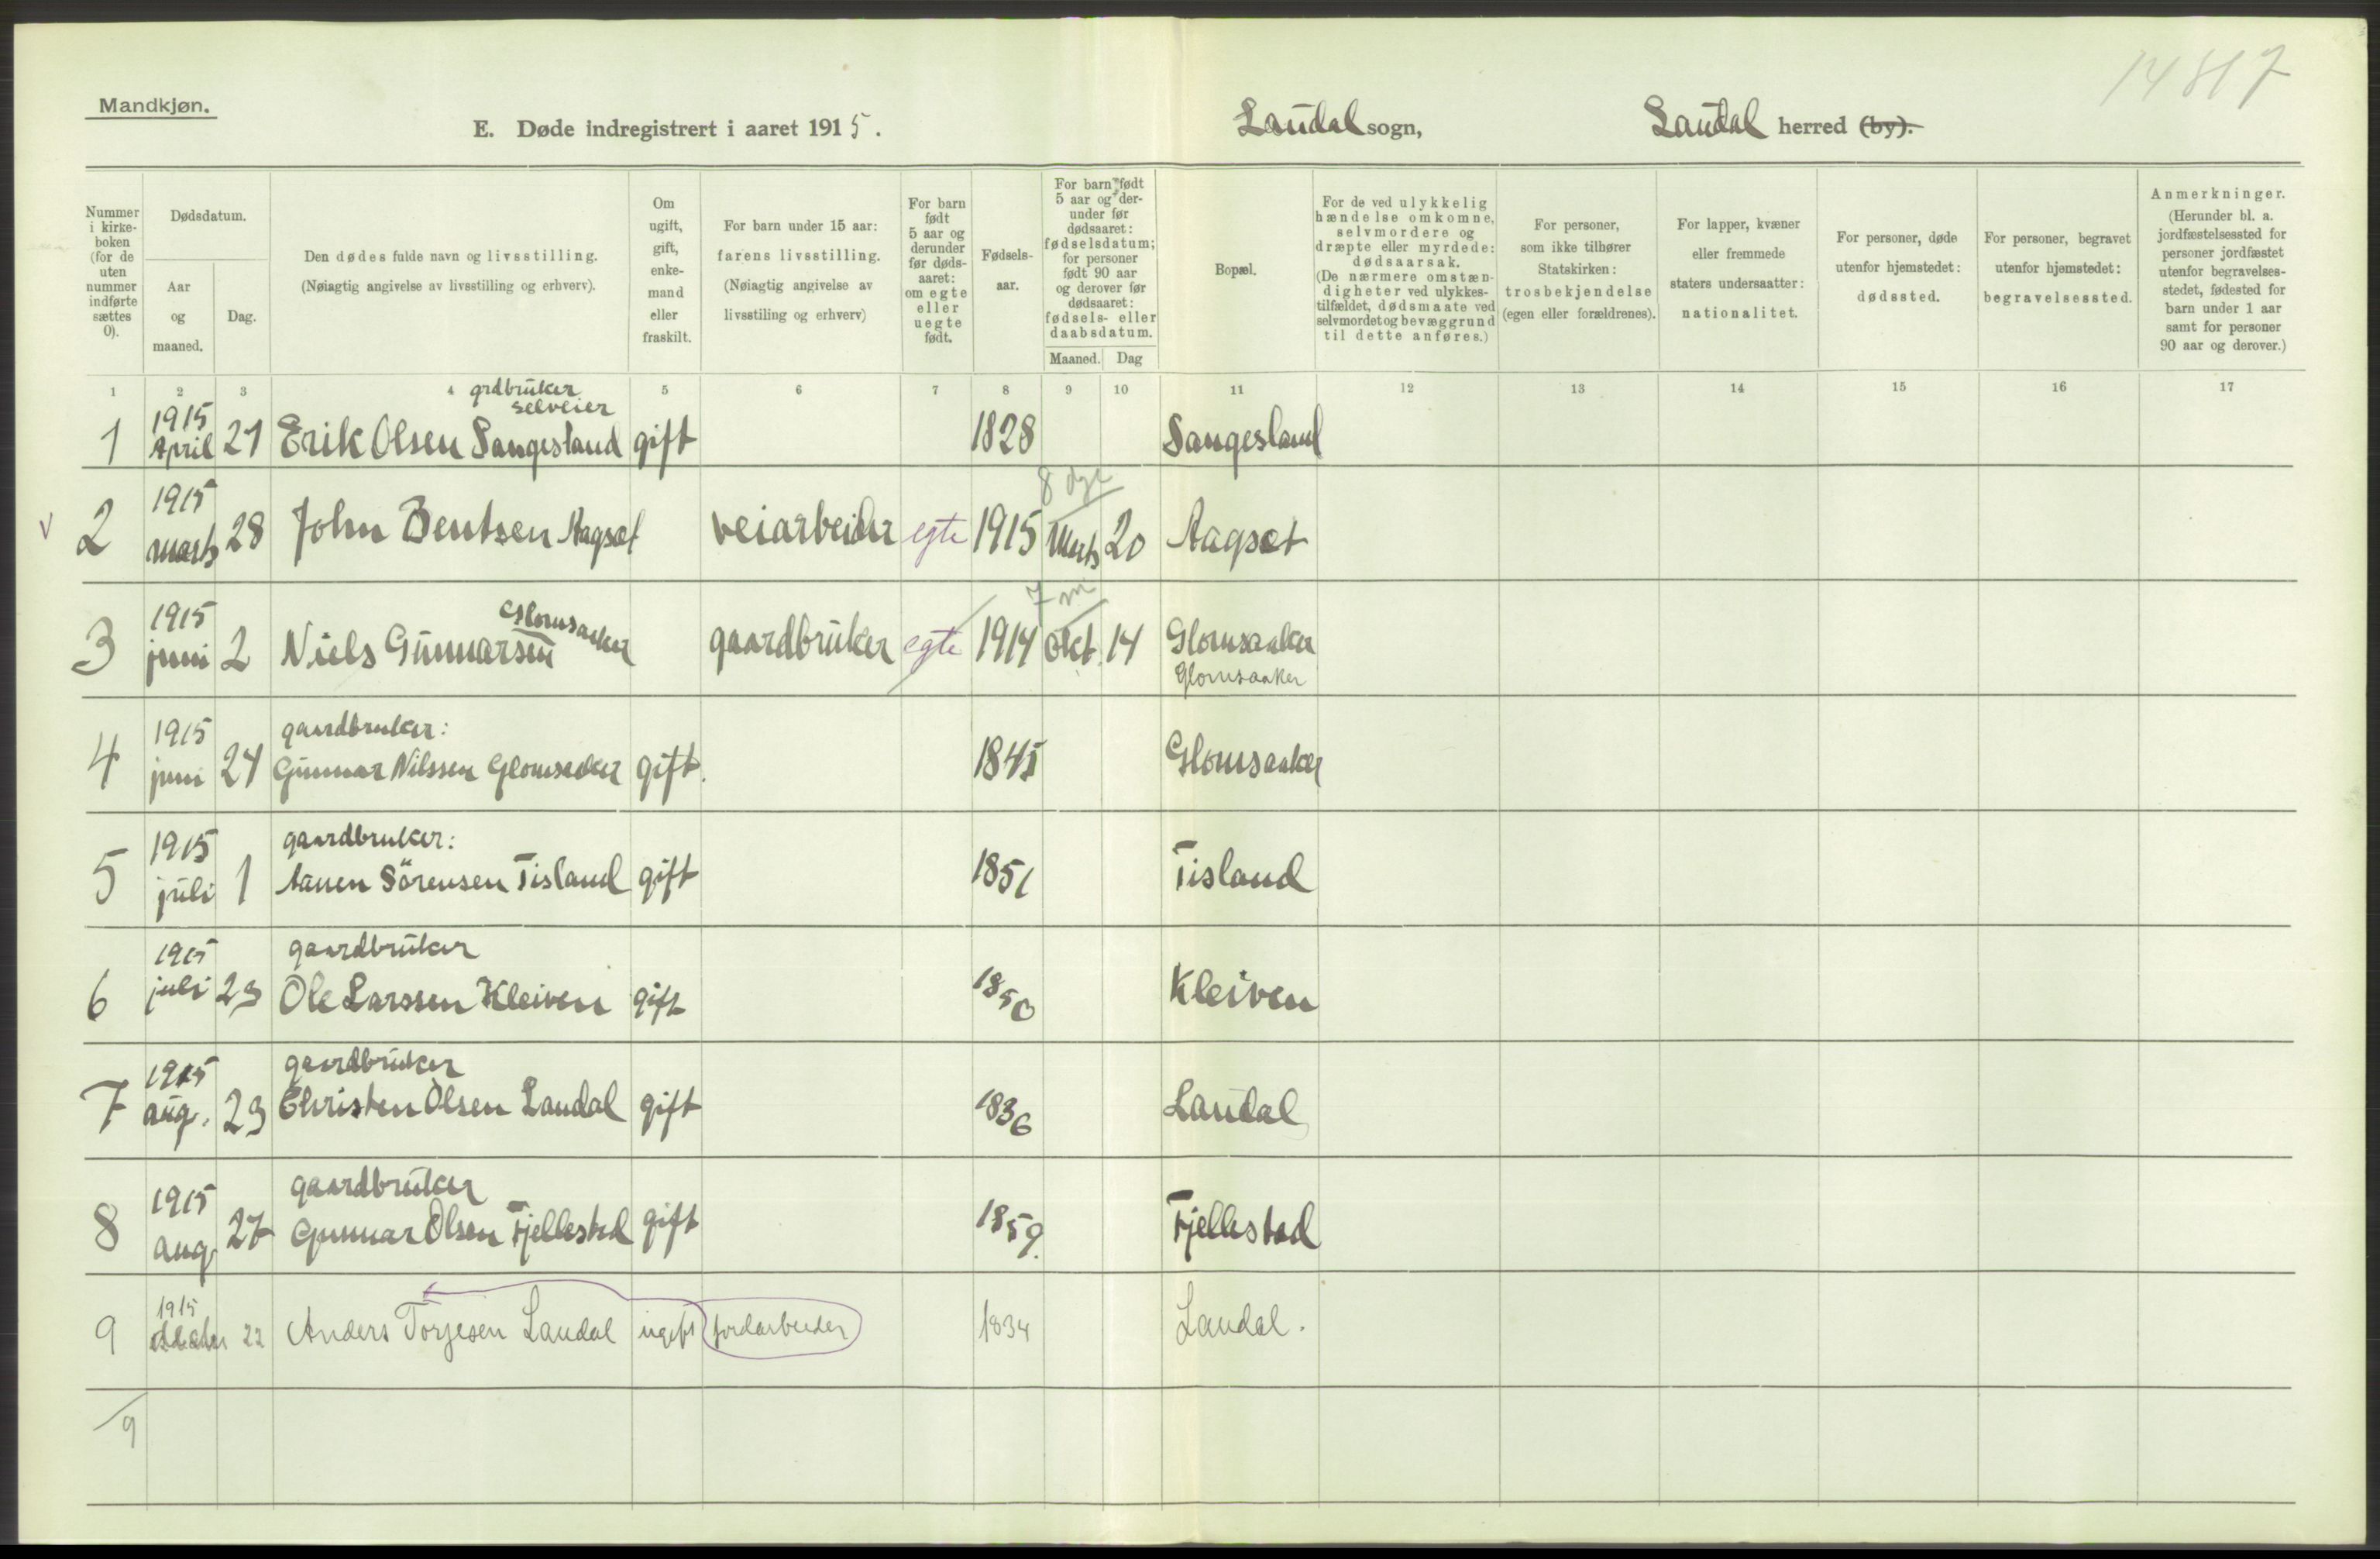 14817
Mandkjøn.
E. Døde indregistrert i aaret 1915.
Laudal sogn, Laudal herred (by).
Nummer i kirkeboken (for de uten nummer indførte sættes 0).
Dødsdatum.
Aar og maaned.
Dag.
Den dødes fulde navn og livsstilling.
(Nøiagtig angivelse av livsstilling og erhverv).
Om ugift, gift, enkemand eller fraskilt.
For barn under 15 aar: farens livsstilling.
(Nøiagtig angivelse av livsstiling og erhverv)
For barn født 5 aar og derunder før dødsaaret: om egte eller uegte født.
Fødselsaar.
For barn født 5 aar og derunder før dødsaaret: fødselsdatum; for personer født 90 aar og derover før dødsaaret: fødsels- eller daabsdatum.
Maaned. Dag
Bopæl.
For de ved ulykkelig hændelse omkomne, selvmordere og dræpte eller myrdede: dødsaarsak.
(De nærmere omstændigheter ved ulykkestilfældet, dødsmaate ved selvmordet og bevæggrund til dette anføres.)
For personer, som ikke tilhører Statskirken: trosbekjendelse (egen eller forældrenes).
For lapper, kvæner eller fremmede staters undersaatter: nationalitet.
For personer, døde utenfor hjemstedet: dødssted.
For personer, begravet utenfor hjemstedet: begravelsessted.
Anmerkninger.
(Herunder bl. a. jordfæstelsessted for personer jordfæstet utenfor begravelsesstedet, fødested for barn under 1 aar samt for personer 90 aar og derover.)
1 2 3 4 5 6 7 8 9 10 11 12 13 14 15 16 17
grdbruker
selveier
1 1915 April 21 Erik Olsen Sangesland gift 1828 Sangesland
8 dge
2 1915 marts 28 John Bentsen Aagset veiarbeider egte 1915 Marts 20 Aagset
7 m
3 1915 juni 2 Niels Gunnarsen Glomsaaker gaardbruker egte 1914 Okt. 14 Glomsaaker
Glomsaaker
gaardbruker:
4 1915 juni 24 Gunnar Nilssen Glomsaaker gift. 1845 Glomsaaker
gaardbruker:
5 1915 juli 1 Aanen Sörensen Tisland gift 1851 Tisland
gaardbruker
6 1915 juli 23 Ole Larssen Kleiven gift 1850 Kleiven
gaardbruker
7 1915 aug. 23 Christen Olsen Laudal gift 1836 Laudal
gaardbruker
8 1915 aug 27 Gunnar Olsen Fjellestad gift 1859. Fjellestad
9 1915 22 Anders Torjesen Laudal ugift jordarbeider 1834 Laudal.
9